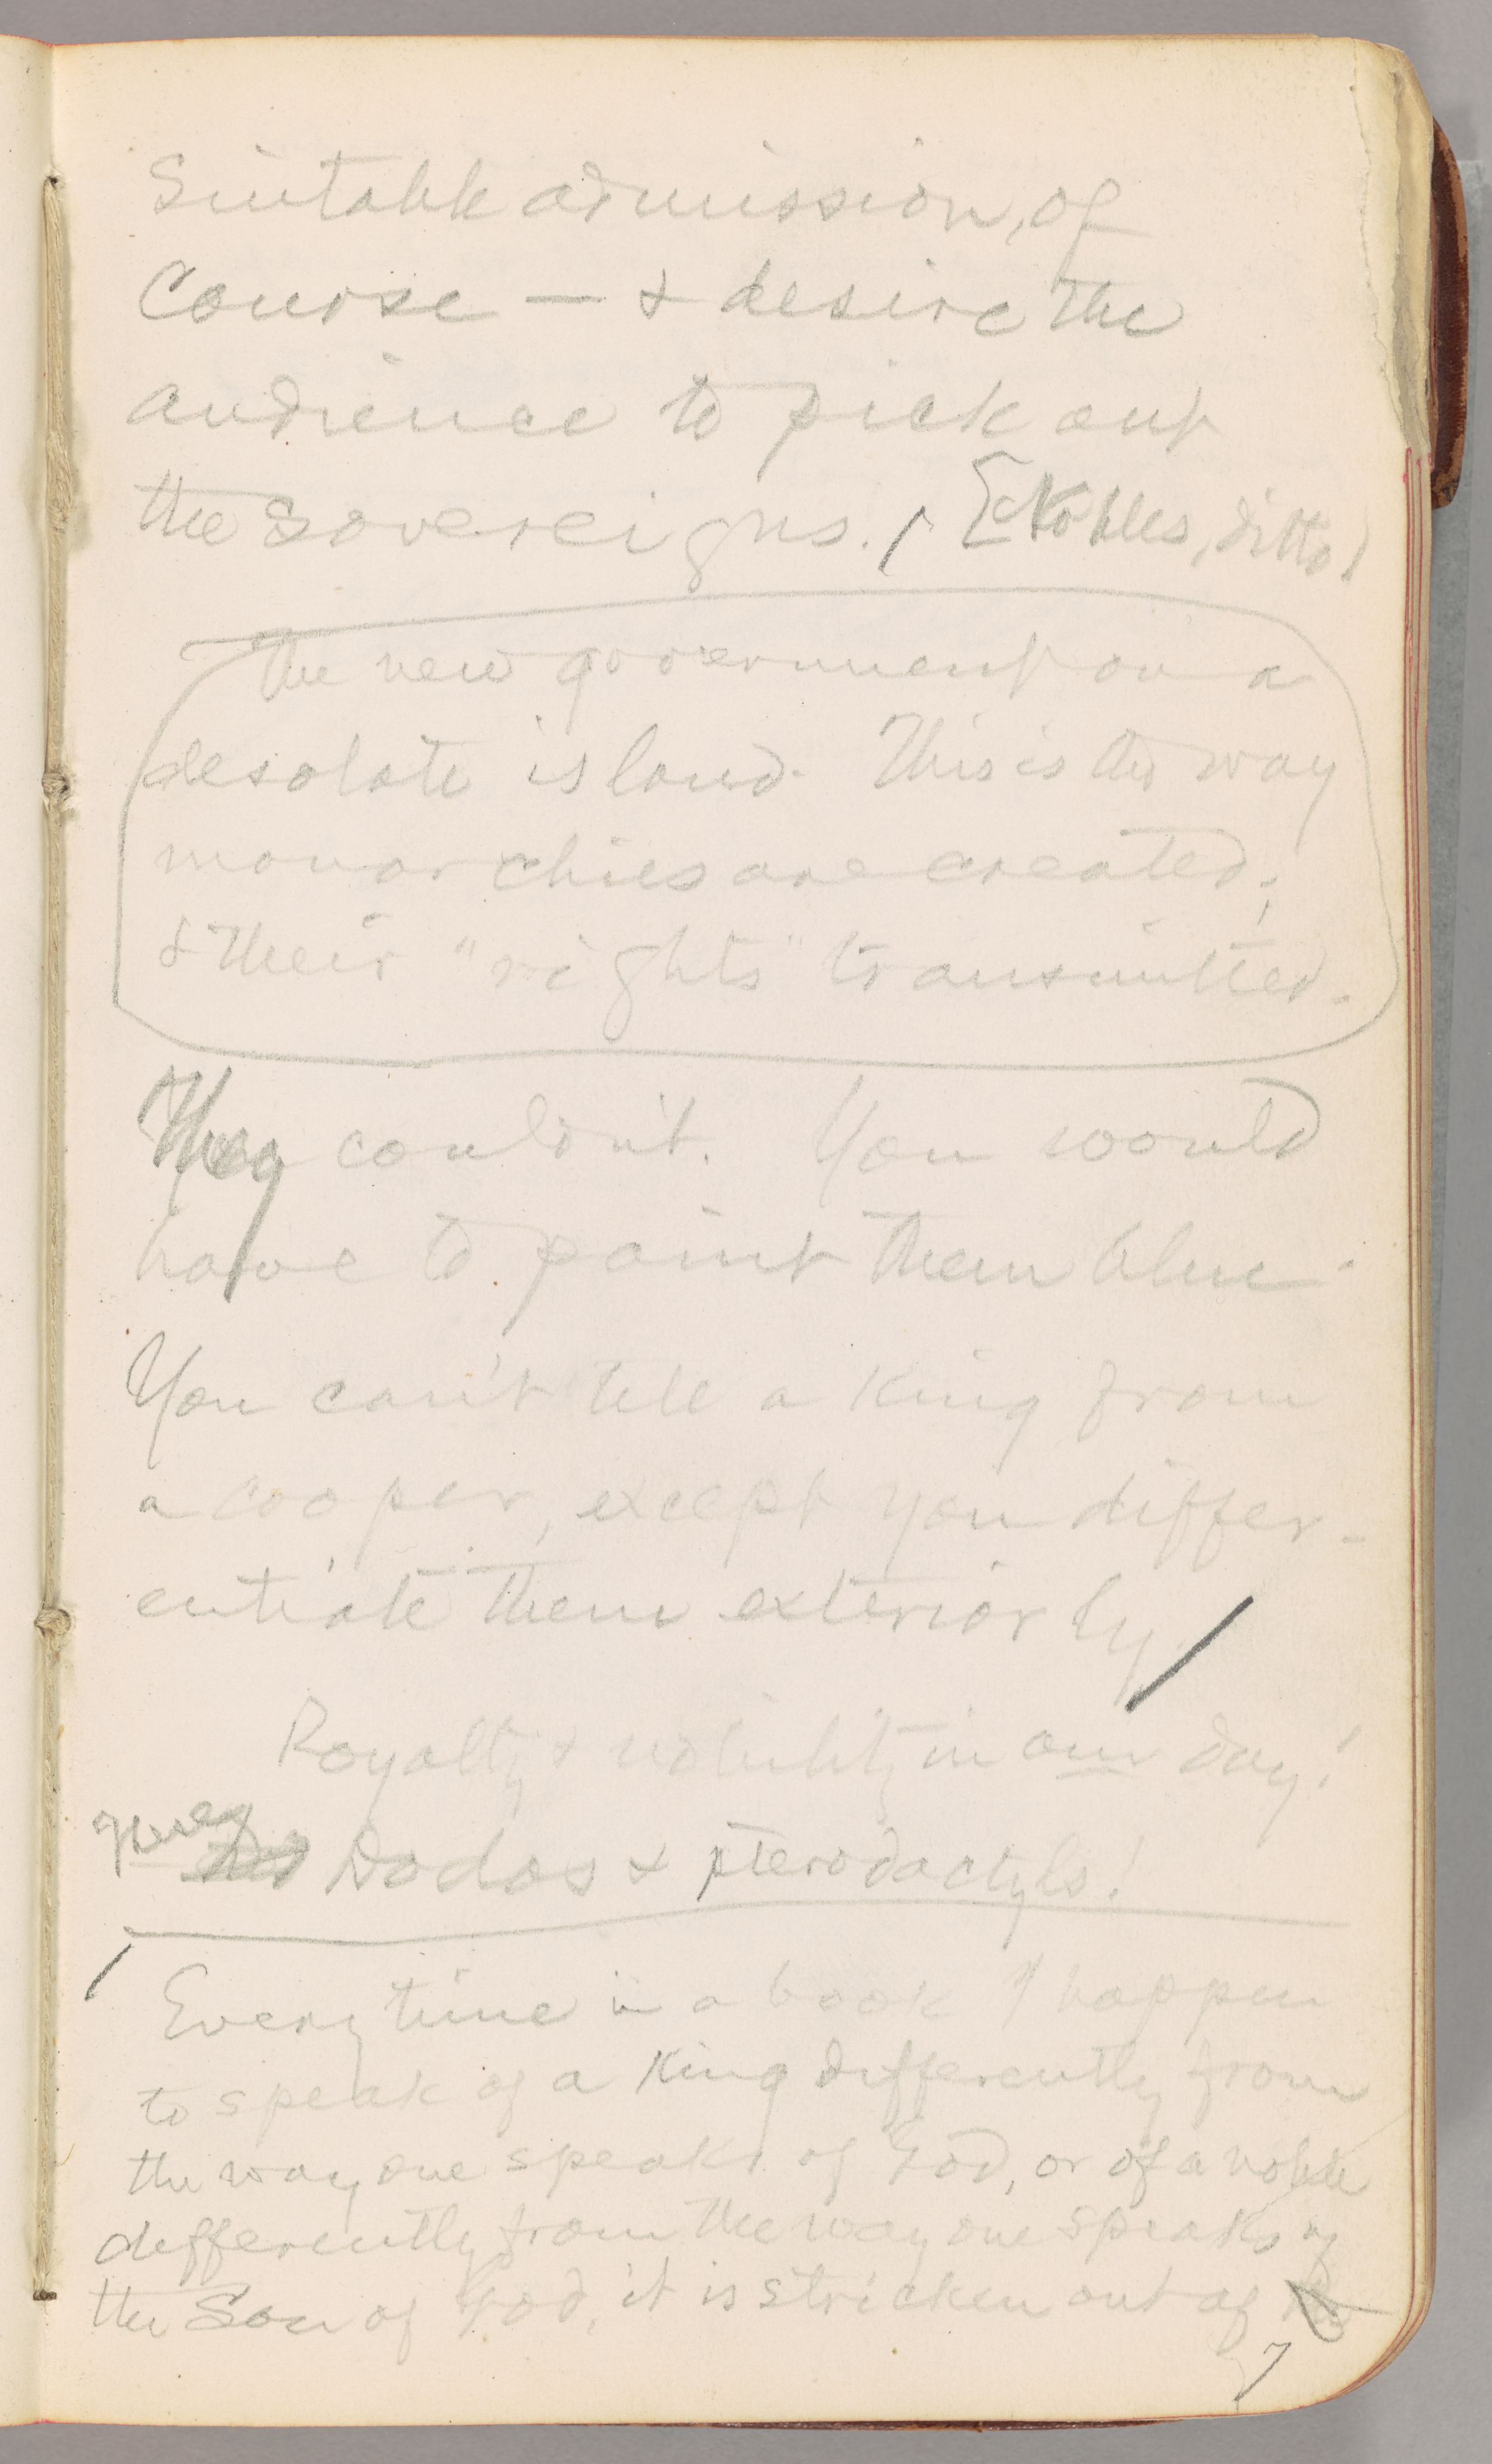 Suitable admission, of
Course — & desire the
audience to pick out
the Sovereigns. [& Nobles, ditto)
The new government on a
desolate island. This is the way
monarchies are created;
& their "rights" transmitted.
They couldn't. You would
have to paint them blue.
You can't tell a King from
a cooper, except you differ-
entiate them exteriorly.
Royalty & nobility in our day!
They
Dodos & pterodactyls!
Every time in a book I happen
to speak of a King differently from
the way one speaks of God, or of a noble
differently from the way one speaks of
the Son of God, it is stricken out of
7